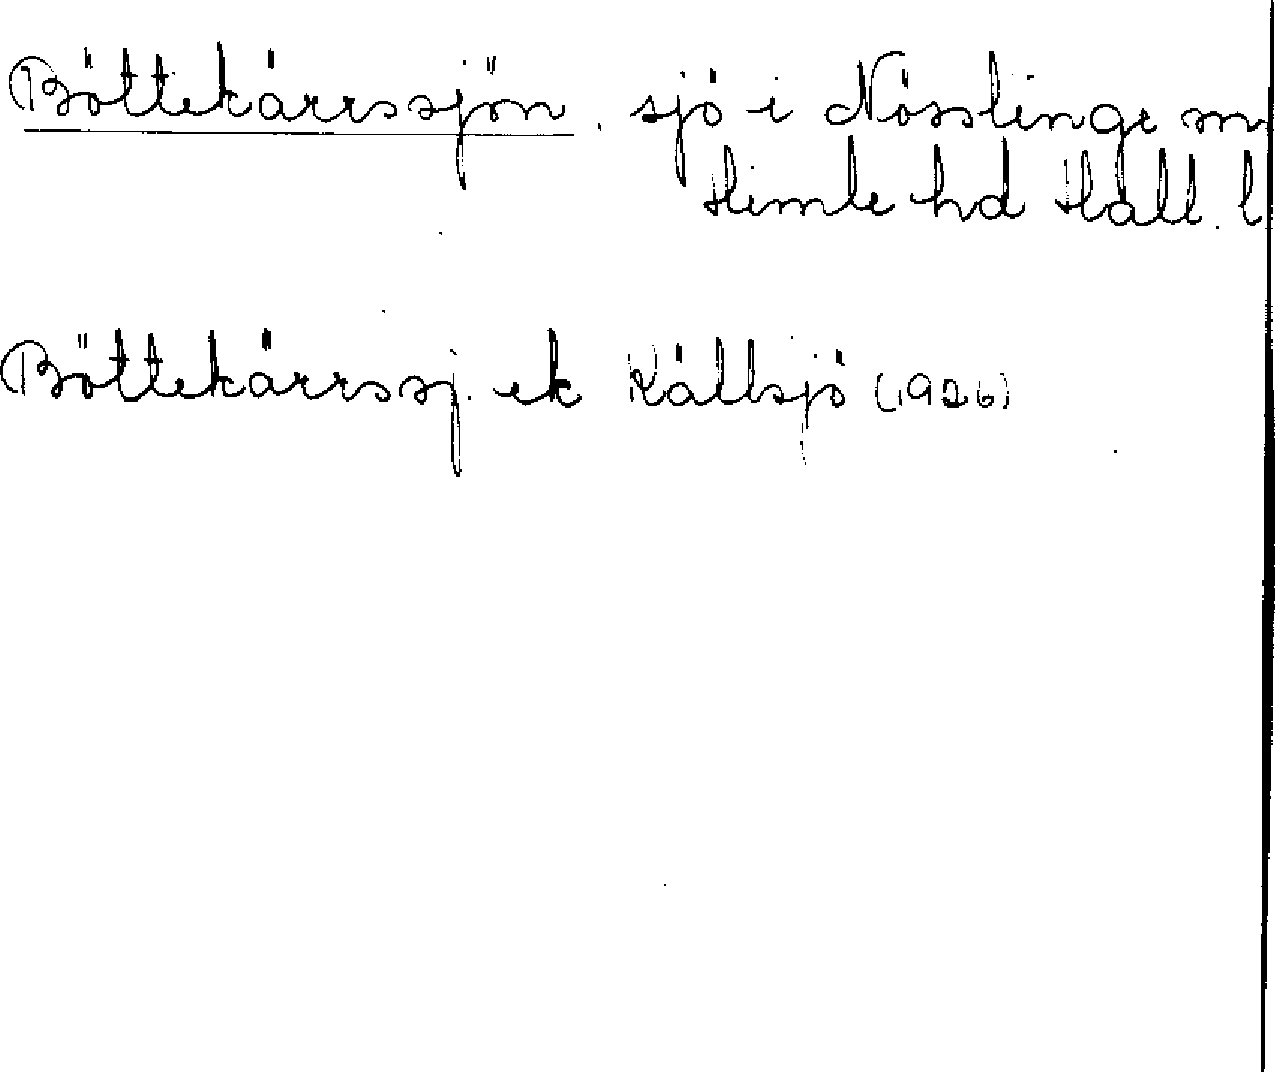 Böttekärrssjön, sjö i Nösslinge sn
Himle hd Hall. l
Böttekärrssj. ek Källsjö (1926)